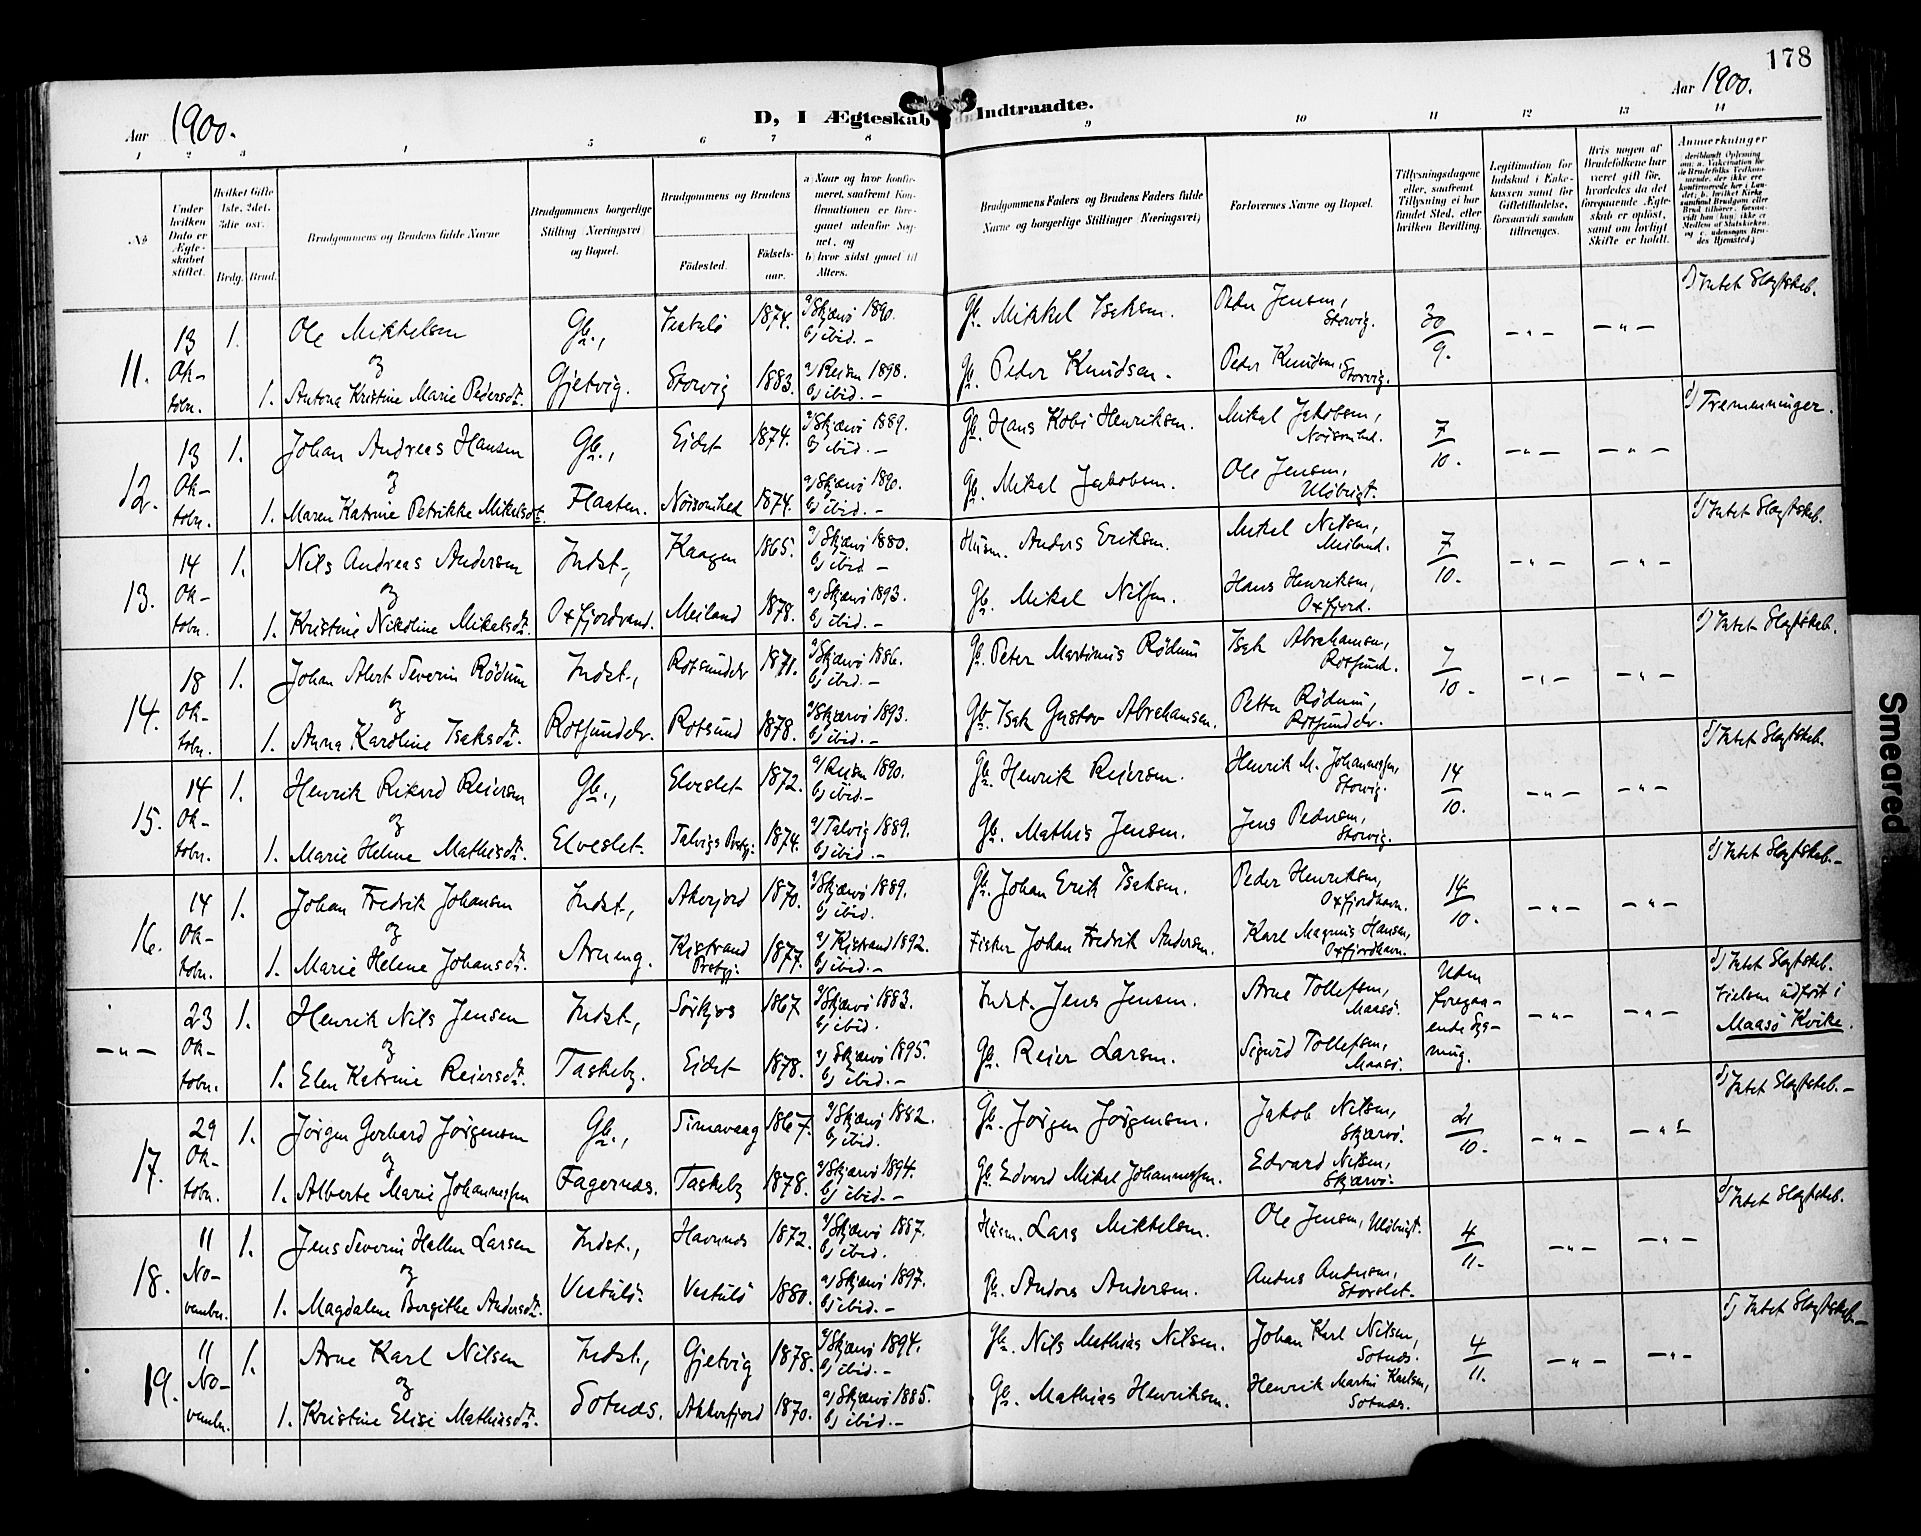 178
Aar 1900.
D, I Ægteskab Indtraadte.
Aar 1900.
1 2 3 4 5 6 7 8 9 10 11 12 13 14
No
Under hvilken Dato er Ægteskabet stiftet.
Hvilket Gifte 1ste, 2det, 3die osv.
Brdg. Brud.
Brudgommens og Brudens fulde Navne
Brudgommens borgerlige Stilling Næringsvei og Bopæl.
Brudgommens og Brudens
Fødested.
Fødselsaar.
a) Naar og hvor konfirmeret, saafremt Konfirmationen er foregaaet udenfor Sognet, og
b) hvor sidst gaaet til Alters.
Brudgommens Faders og Brudens Faders fulde Navne og borgerlige Stillinger Næringsvei)
Forlovernes Navne og Bopæl.
Tillysningsdagene eller, saafremt Tillysning ei har fundet Sted, efter hvilken Bevilling.
Legitimation for Indskud i Enkekassen samt for Giftetilladelse, forsaavidt saadan tiltrænges.
Hvis nogen af Brudefolkene har været gift før, hvorledes da det foregaaende Ægteskab er opløst, samt om lovligt Skifte er holdt.
Anmerkninger
11. 13 Oktobr. 1. Ole Mikkelsen Gb., Vestulö 1874. a) Skjærvö 1890. b) ibid.— Gb. Mikkel Isaksen. Peder Jensen, Storvig. 30/9. — " — — " — Intet Slegtskab.
og
1. Antona Kristine Marie Pedersdt. Gjetvig. Storvig 1883. a) Reisen 1898. b) ibid.— Gb. Peder Knudsen. Peder Knudsen, Storvig.
12. 13 Oktobr. 1. Johan Andreas Hansen Gb., Eidet 1874. a) Skjærvö 1889. b) ibid.— Gb. Hans Kobi Henriksen. Mikal Jakobsen, Noisomhed. 7/10. — " — — " — Tremenninger.
og
1. Maren Katrine Petrikke Mikalsdt. Flaaten. Noisomhed 1874. a) Skjærvö 1890. b) ibid.— Gb. Mikal Jakobsen. Ole Jensen, Ulöbugt.
13. 14 Oktobr. 1. Nils Andreas Andersen Indst., Kaagen 1865. a) Skjærvö 1880. b) ibid— Husm. Anders Eriksen. Mikel Nilsen, Meiland. 7/10. — " — — " — Intet Slegtskab.
og
1. Kristine Nikoline Mikelsdt. Oxfjordvand. Meiland 1878. a) Skjærvö 1893. b) ibid.— Gb. Mikel Nilsen. Hans Henriksen, Oxfjord.
14. 18 Oktobr. 1. Johan Alert Severin Rödum Indst., Rotsundelv 1871. a) Skjærvö 1886. b) ibid.— Gb. Peter Martinus Rödum Isak Abrahamsen, Rotsund. 7/10. — " — — " — Intet Slegtskab.
og
1. Anna Karoline Isaksdt. Rotsundelv. Rotsund 1878. a) Skjærvö 1893. b) ibid.— Gb. Isak Gustav Abrahamsen. Petter Rödum, Rotsundelv.
15. 14 Oktobr. 1. Henrik Rikard Reiersen Gb., Elveslet 1872. a) Reisen 1890. b) ibid— Gb. Henrik Reiersen. Henrik M. Johannessen, Storvig. 14/10. — " — — " — Intet Slegtskab.
og
1. Marie Helene Mathisdt. Elveslet. Talvigs Prstgj. 1874. a) Talvig 1889. b) ibid.— Gb. Mathis Jensen. Jens Pedersen, Storvig.
16. 14 Oktobr. 1. Johan Fredrik Johansen Indst., Akerfjord 1870. a) Skjærvö 1889. b) ibid. Gb. Johan Erik Isaksen. Peder Henriksen, Oxfjordhavn. 14/10. — " — — " — Intet Slegtskab.—
og
1. Marie Helene Johansdt. Arneng. Kistrand Prstgj. 1877. a) Kistrand 1892. b) ibid.— Fisker Johan Fredrik Andersen. Karl Magnus Hansen, Oxfjordhavn.
— " — 23 Oktobr. 1. Henrik Nils Jensen Indst., Sörkjos 1867 a) Skjærvö 1883. b) ibid. Indst. Jens Jensen. Arne Tollefsen, Maasö. Uden foregaaende Lysning. — " — — " — Intet Slegtskab. Vielsen udført i Maasö Kirke.
og
1. Elen Katrine Reiersdt. Taskeby. Eidet 1878. a) Skjærvö 1895. b) ibid.— Gb. Reier Larsen. Sigurd Tollefsen, Maasö.
17. 29 Oktobr. 1. Jörgen Gerhard Jörgensen Gb., Simavaag 1867. a) Skjærvö 1882. b) ibid. Gb. Jörgen Jörgensen. Jakob Nilsen, Skjærvö. 21/10. — " — — " — Intet Slegtskab.—
og
1. Alberte Marie Johannessen Fagernæs. Taskeby 1878. a) Skjærvö 1894. b) ibid.— Gb. Edvard Mikal Johannessen. Edvard Nilsen, Skjærvö.
18. 11 November. 1. Jens Severin Hallen Larsen Indst., Havnnæs 1872. a) Skjærvö 1887. b) ibid. Husm. Lars Mikkelsen. Ole Jensen, Ulöbugt. 4/11. — " — — " — Intet Slegtskab.
og
1. Magdalene Bergithe Andersdt. Vestulö. Vestulö 1880. a) Skjærvö 1897. b) ibid.— Gb. Anders Andersen. Anders Andersen, Storslet.
19. 11 November. 1. Arne Karl Nilsen Indst., Gjetvig 1878. a) Skjærvö 1894. b) ibid.— Gb. Nils Mathias Nilsen. Johan Karl Nilsen, Sotnæs. 4/11. — " — — " — Intet Slegtskab.—
og
1. Kristine Elise Mathiasdt. Sotnæs. Akkerfjord 1870. a) Skjærvö 1885. b) ibid.— Gb. Mathias Henriksen. Henrik Martin Karlsen, Sotnæs.
Smeared